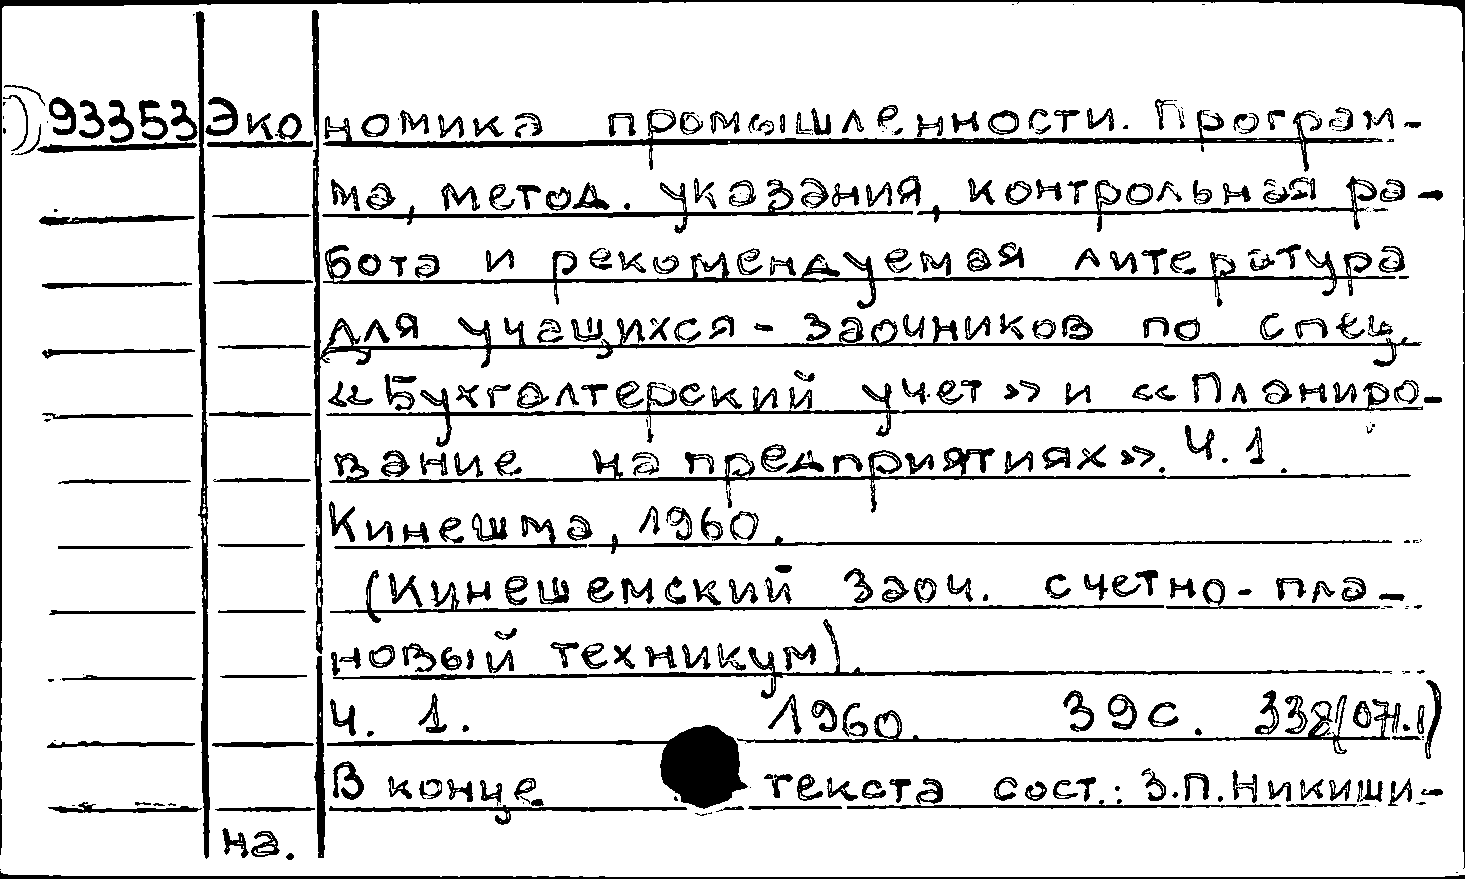 93353 Экономика промышленности. Програм-
ма, метод. указания, контрольная ра-
бота и рекомендуемая литература
для учащихся - заочников по спец.
«Бухгалтерский учет» и «Планиро-
вание на предприятиях». Ч. 1.
Кинешма, 1960.
(Кинешемский заоч. счетно-пла-
новый техникум).
Ч. 1. 1960. 39 с. 338(071.1)
В конце текста сост.: З.П. Никиши-
на.